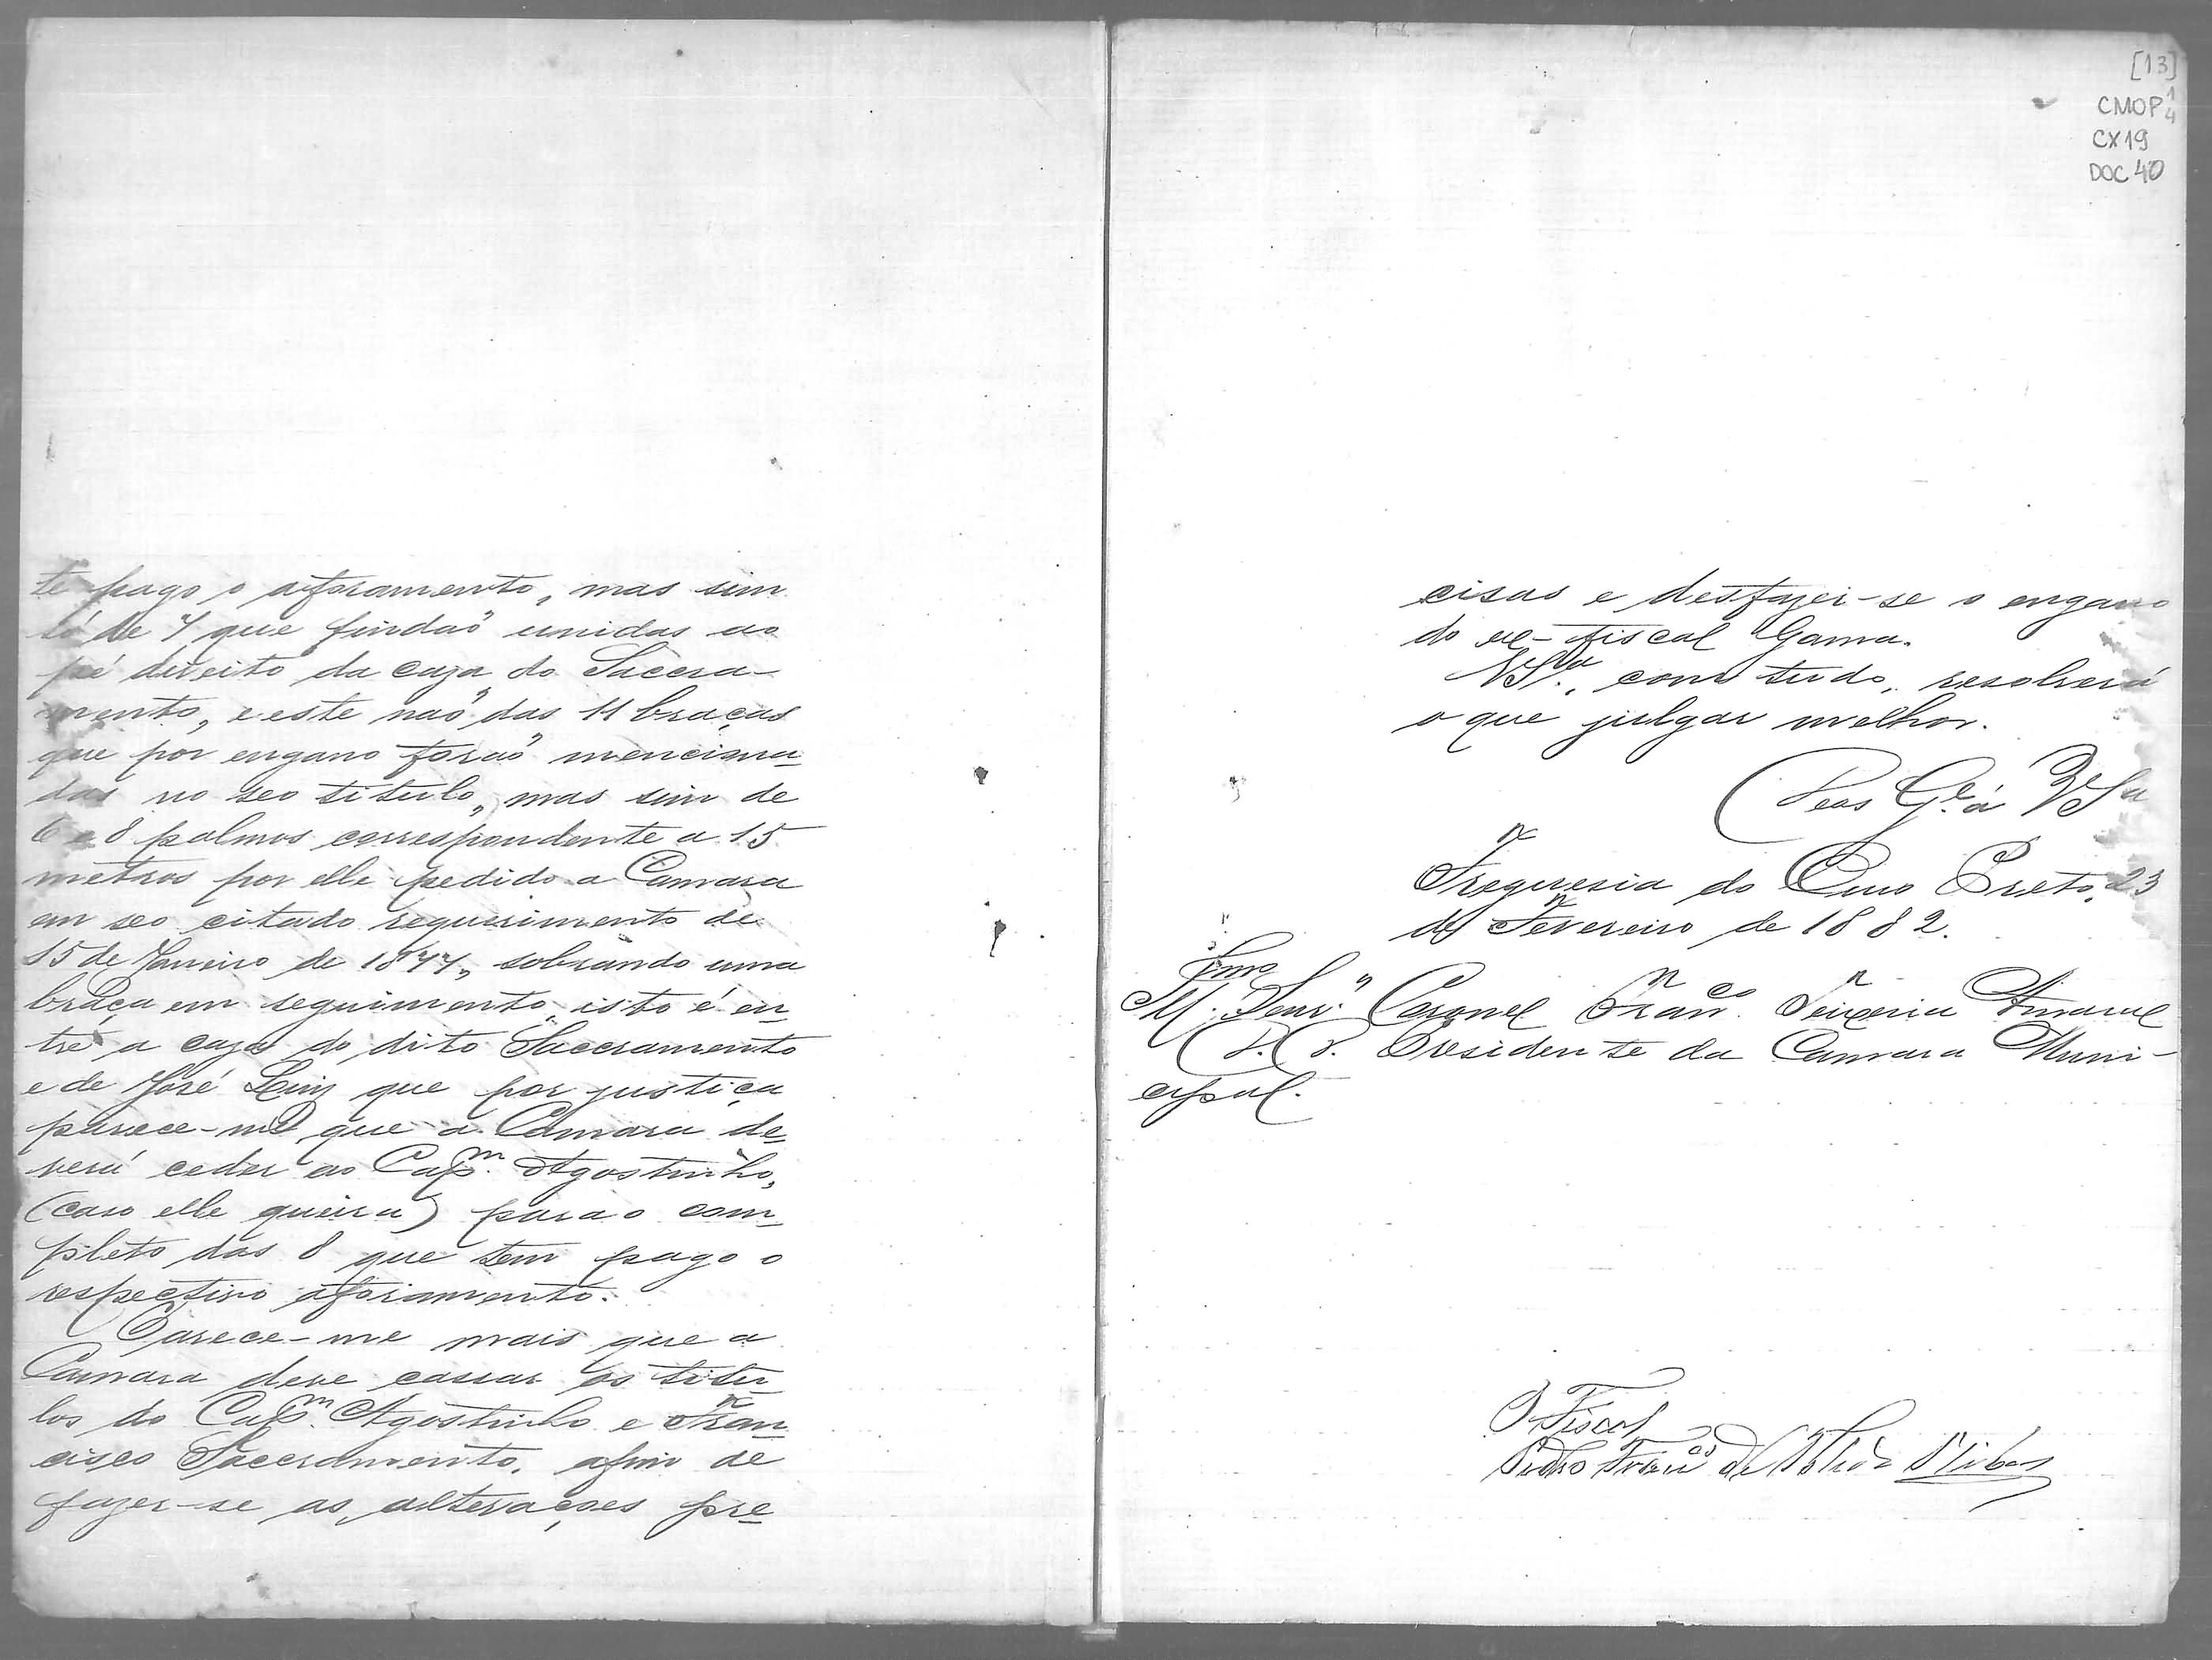 te pago o aforamento, mas sim
só de 7 que findaõ unidas ao
pé direito da caza do Sacra-
mento, e este naõ das 11 braças
que por engano foraõ menciona
das no seo titulo, mas sim de
6 e 8 palmos correspondente a 15
metros por elle pedido a Camara
em seo citado requerimento de
15 de Janeiro de 1877, sobrando uma
braça em seguimento, isto é en
tre a caza do dito Saccramento
e de José Luiz que por justiça
parece-me que a Camara de
verá ceder ao Capᵐ. Agostinho,
(caso elle queira) para o com
pleto das 8 que tem pago o
respectivo aforamento.
Parece-me mais que a
Camara deve cassar os titu
los do Capᵐ. Agostinho e Fran
cisco Saccramento, afim de
fazer-se as alterações pre
[13]
CMOP 1/4
CX19
DOC 40
cisas e desfazer-se o engano
do ex-fiscal Gama.
VSª., com tudo, resolverá
o que julgar melhor.
Deos Gᵉ. á VSª
Freguesia do Ouro Preto, 23
de Fevereiro de 1882.
Illmo. Senr. Coronel Franᶜᵒ. Teixeira Amaral
D. D. Presidente da Camara Muni-
cipal.
O Fiscal
Pedro Franᶜᵒ de